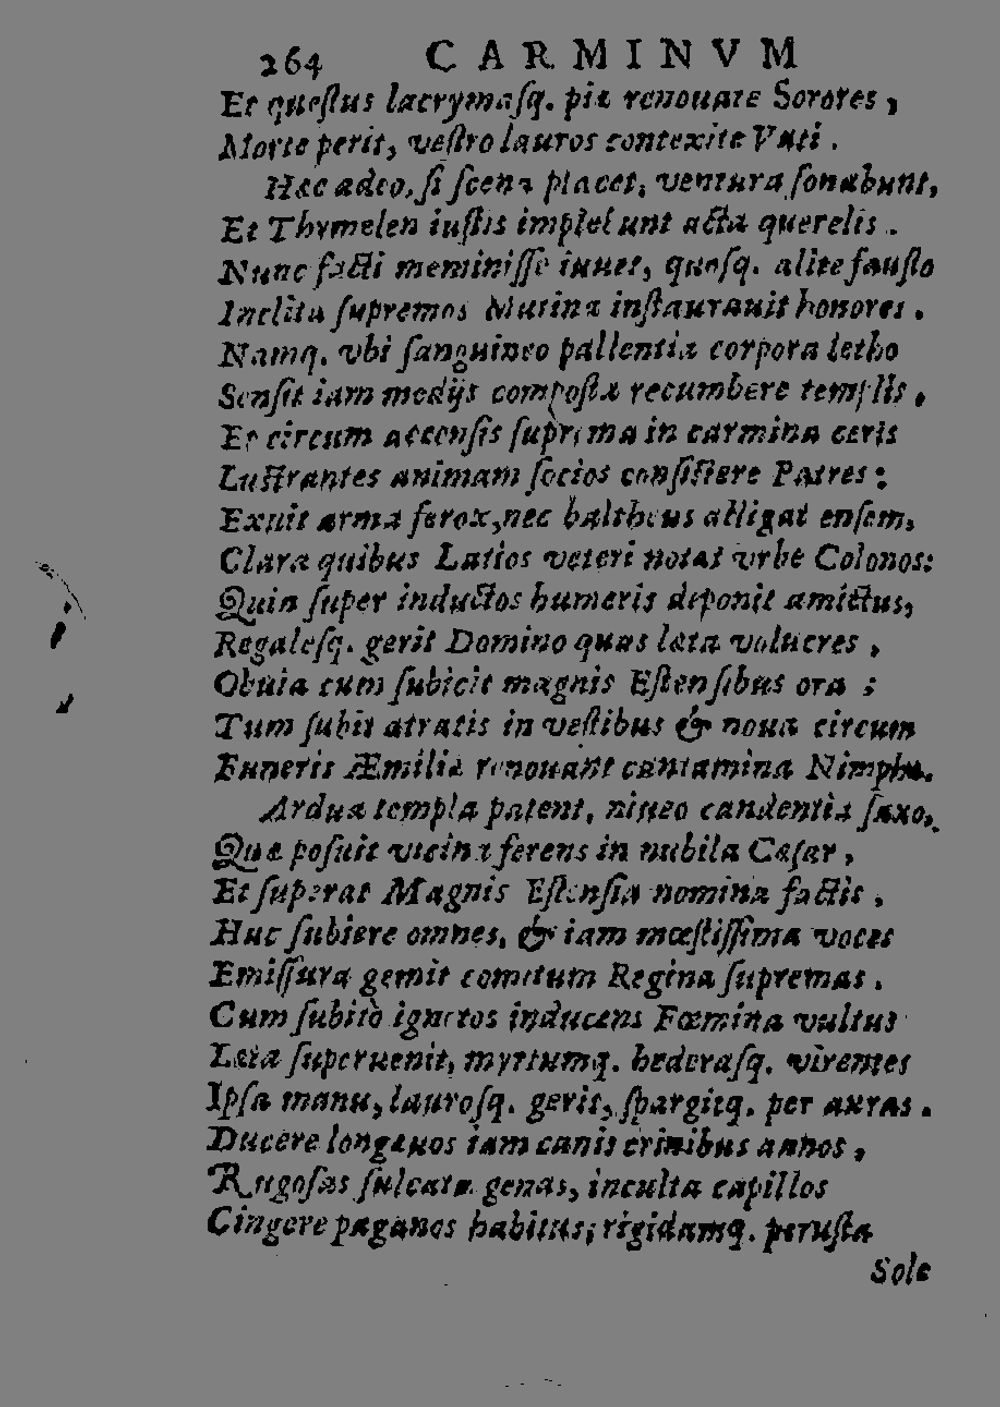 264 CARMINVM
Et questus lacrymasq. piæ renouate Sorores,
Morte perit, vestro lauros contexite Vati.
Hæc adeo, si scena placet, ventura sonabunt,
Et Thymelen iustis implebunt acta querelis.
Nunc facti meminisse iuuet, quosq. alite fausto
Inclita supremos Mutina instaurauit honores.
Namq. vbi sanguineo pallentia corpora letho
Sensit iam medijs composta recumbere templis,
Et circum accensis suprema in carmina ceris
Lustrantes animam socios consistere Patres:
Exuit arma ferox, nec baltheus alligat ensem,
Clara quibus Latios veteri notat vrbe Colonos:
Quin super inductos humeris deponit amictus,
Regalesq. gerit Domino quas læta volucres,
Obuia cum subicit magnis Estensibus ora;
Tum subit atratis in vestibus & noua circum
Funeris Æmiliæ renouant cantamina Nimphæ.
Ardua templa patent, niueo candentia saxo,
Quæ posuit vicina ferens in nubila Cæsar,
Et superat Magnis Estensia nomina factis,
Huc subiere omnes, & iam mœstissima voces
Emissura gemit comitum Regina supremas.
Cum subitò ignotos inducens Fœmina vultus
Læta superuenit, myrtumq. hederasq. virentes
Ipsa manu, laurosq. gerit, spargitq. per auras.
Ducere longæuos iam canis crinibus annos,
Rugosas sulcata genas, inculta capillos
Cingere paganos habitus; rigidamq. perusta
Sole